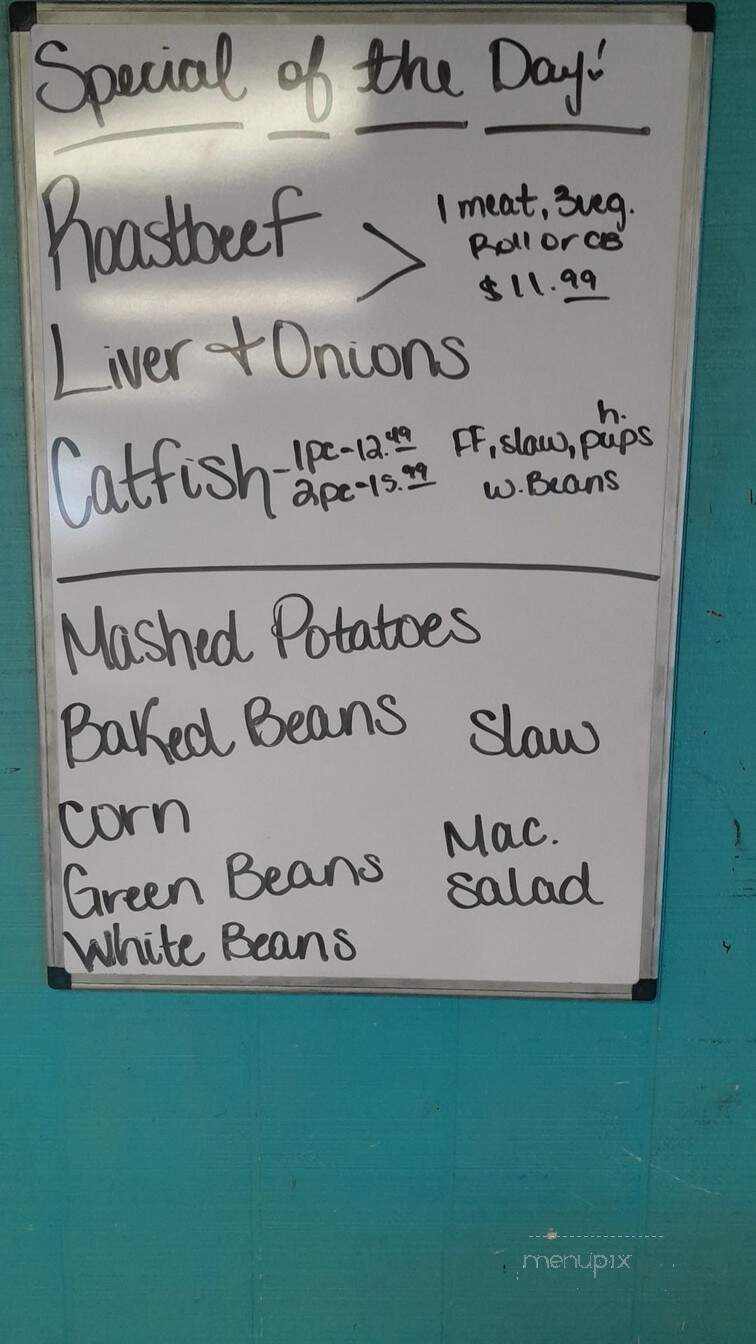 Special of the Day!
Roastbeef
1 meat, 3veg.
Roll or CB
$11.99
Liver + Onions
Catfish - 1pc-12.49
2pc-15.99
FF, slaw, h. pups
w. Beans
Mashed Potatoes
Baked Beans
Slaw
Corn
Mac.
Salad
Green Beans
White Beans
menupix